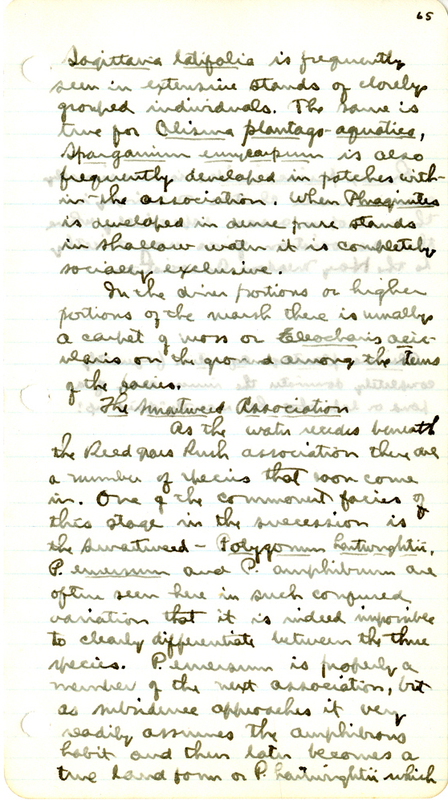 65
Sagittaria latifolia is frequently
seen in extensive stands of closely
grouped individuals. The same is
true for Alisma plantago-aquatica,
Sparganium eurycarpum is also
frequently developed in patches with-
in the association. When Phragmites
is developed in dense pure stands
in shallow water it is completely
socially exclusive.
In the drier portions or higher
portions of the marsh there is usually
a carpet of moss or Eleocharis acic-
ularis on the ground among the stems
of the facies.
The Smartweed Association
As the water recedes beneath
the Reed grass Rush association there are
a number of species that soon come
in. One of the commonest facies of
this stage in the succession is
the Smartweed - Polygonum hartwrightii,
P. emersum and P. amphibium are
often seen here in such confused
variation that it is indeed impossible
to clearly differentiate between the three
species. P. emersum is properly a
member of the next association, but
as subsidence approaches it very
readily assumes the amphibious
habit and then later becomes a
true land form or P. hartwrightii which